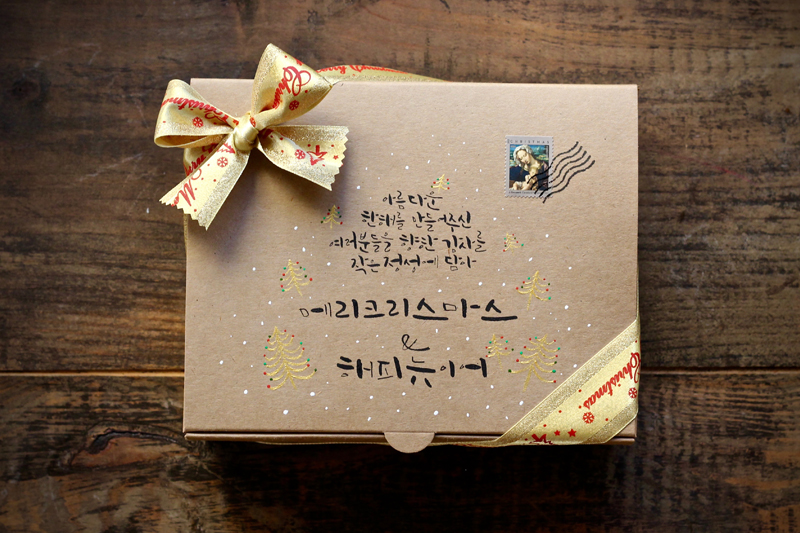 CHRISTMAS
아름다운
한해를 만들어주신
여러분들을 향한 감사를
작은정성에 담아
메리크리스마스
&
해피뉴이어
Christmas
Christmas.